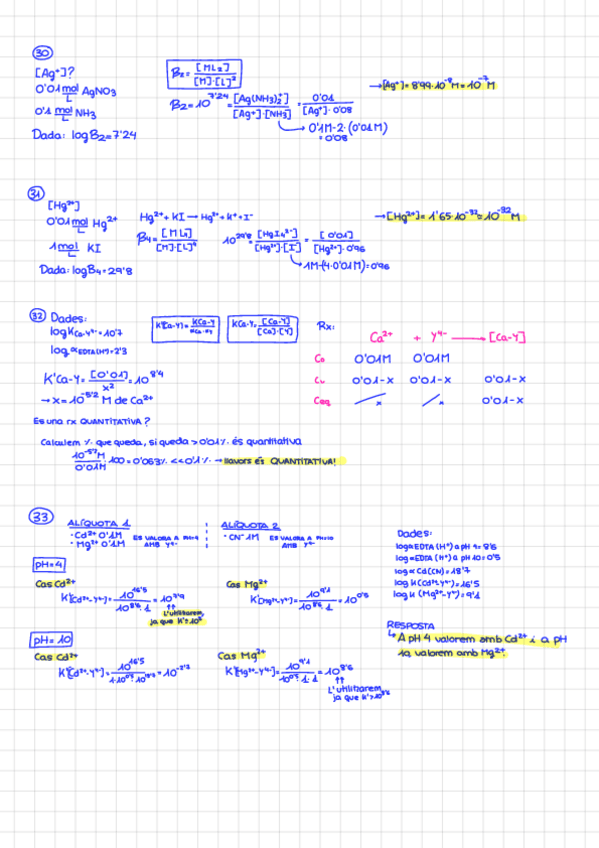 30
[Ag⁺]?
0'01 mol/L AgNO₃
0'1 mol/L NH₃
Dada: log B₂=7'24
B₂= [ML₂]/[M]·[L]²
B₂=10^7'24=[Ag(NH₃)₂⁺]/[Ag⁺]·[NH₃]=0'01/[Ag⁺]·0'08
0'1M-2·(0'01M)
=0'08
→[Ag⁺]=8'99·10⁻⁸M≈10⁻⁷M
31
[Hg²⁺]
0'01 mol/L Hg²⁺
1 mol/L KI
Dada: log B₄=29'8
Hg²⁺+ KI → Hg²⁺+K⁺+I⁻
B₄=[ML₄]/[M]·[L]⁴
10^29'8=[HgI₄²⁻]/[Hg²⁺]·[I⁻]=[0'01]/[Hg²⁺]·0'96
1M-(4·0'01M)=0'96
→[Hg²⁺]=1'65·10⁻³²≈10⁻³²M
32 Dades:
log K Ca-Y²⁻=10'7
log αEDTA(H⁺)=2'3
K'(Ca-Y)=KCa-Y/αCa·αY
KCa-Y=[Ca-Y]/[Ca]·[Y]
Rx:
Ca²⁺ + Y⁴⁻ → [Ca-Y]
Co 0'01M 0'01M
Cu 0'01-x 0'01-x 0'01-x
Ceq x x 0'01-x
K'Ca-Y=[0'01]/x²=10^8'4
→ x=10^-5'2 M de Ca²⁺
És una rx QUANTITATIVA?
Calculem % que queda, si queda > 0'01% és quantitativa
10^-5'2M/0'01M·100=0'063% <<0'1% → llavors és QUANTITATIVA!
33
ALÍQUOTA 1
·Cd²⁺ 0'1M
·Mg²⁺ 0'1M
ES VALORA A PH=4
AMB Y⁴⁻
ALÍQUOTA 2
·CN⁻ 1M
ES VALORA A PH=10
AMB Y⁴⁻
Dades:
log αEDTA (H⁺) a pH 4=8'6
log αEDTA (H⁺) a pH 10=0'5
log αCd(CN)=18'7
log K(Cd²⁺-Y⁴⁻)=16'5
log K (Mg²⁺-Y⁴⁻)=9'1
pH=4
Cas Cd²⁺
K'[Cd²⁺-Y⁴⁻]=10^16'5/10^8'6·1=10^7'9
L'utilitzarem,
ja que K'>10⁶
Cas Mg²⁺
K'[Mg²⁺-Y⁴⁻]=10^9'1/10^8'6·1=10^0'5
pH=10
Cas Cd²⁺
K'[Cd²⁺-Y⁴⁻]=10^16'5/1·10^0'5·10^18'7=10^-2'7
Cas Mg²⁺
K'[Mg²⁺-Y⁴⁻]=10^9'1/10^0'5·1·1=10^8'6
L'utilitzarem,
ja que K'>10
RESPOSTA
↳ A pH 4 valorem amb Cd²⁺ i a pH
10, valorem amb Mg²⁺.